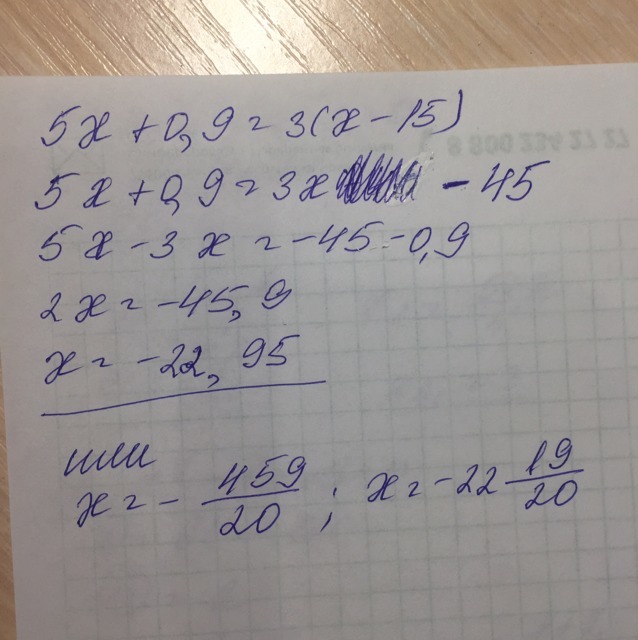 5x + 0,9 = 3(x - 15)
5x + 0,9 = 3x - 45
5x - 3x = -45 - 0,9
2x = -45,9
x = -22,95
или
x = - 459/20 ; x = -22 19/20
8 800 234 27 27